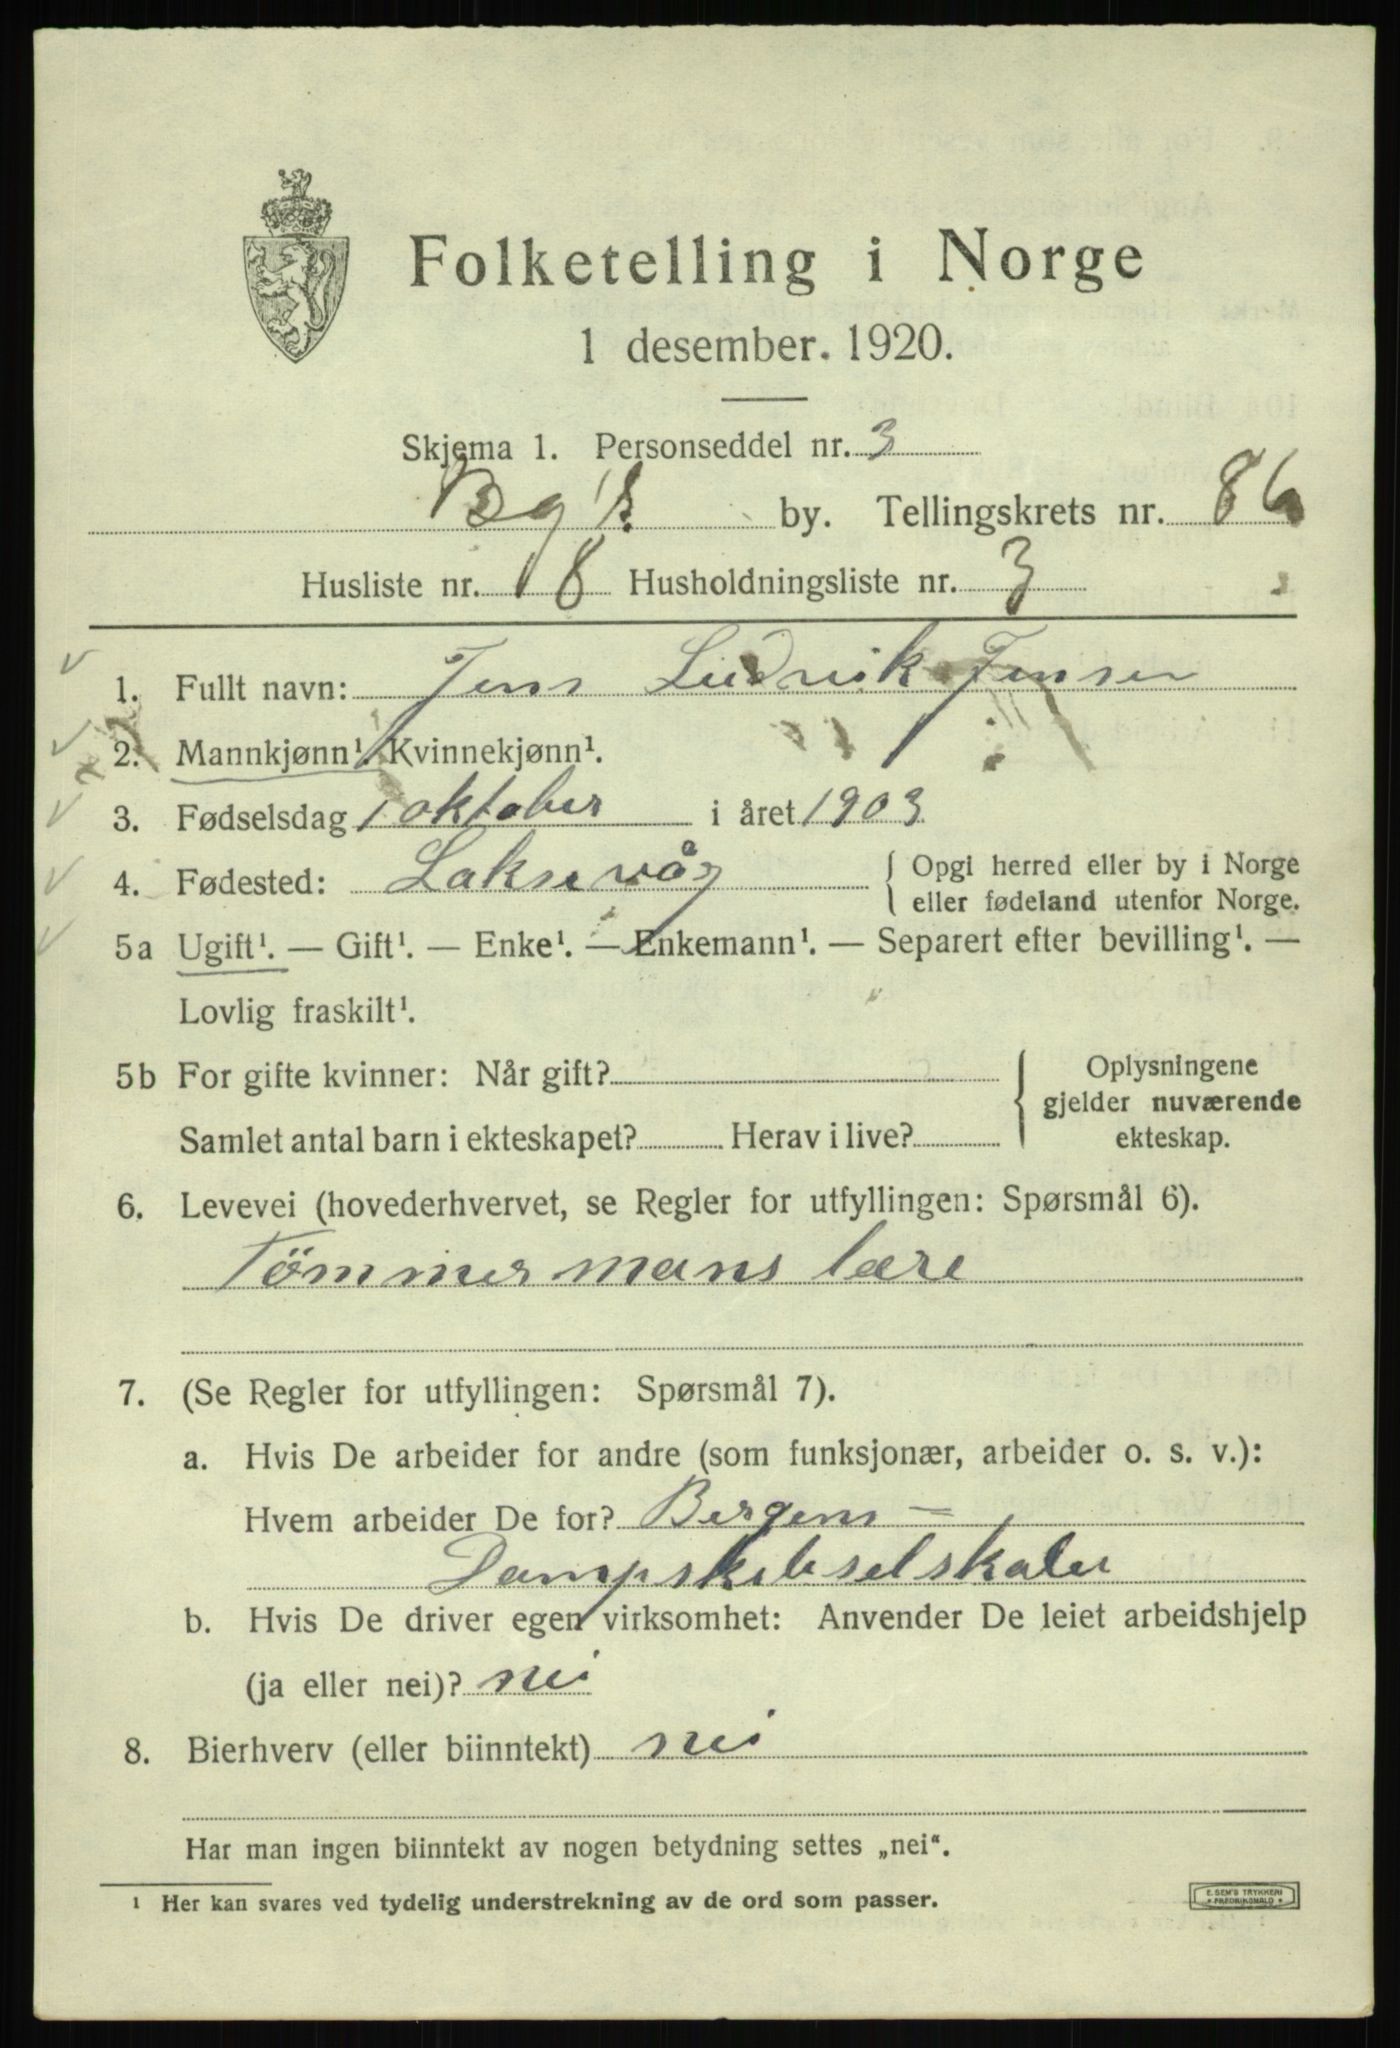 Folketelling i Norge
1 desember. 1920.
Skjema 1. Personseddel nr. 3
by. Tellingskrets nr. 86
Husliste nr. 18 Husholdningsliste nr. 3
1. Fullt navn: Jens Ludvik Jensen
2. Mannkjønn¹ Kvinnekjønn¹.
3. Fødselsdag 1 oktober i året 1903
4. Fødested: Laksevåg { Opgi herred eller by i Norge
eller fødeland utenfor Norge.
5a Ugift¹. — Gift¹. — Enke¹. — Enkemann¹. — Separert efter bevilling¹. —
Lovlig fraskilt¹.
5b For gifte kvinner: Når gift?
Samlet antal barn i ekteskapet? Herav i live?
Oplysningene
gjelder nuværende
ekteskap.
6. Levevei (hovederhvervet, se Regler for utfyllingen: Spørsmål 6).
Tömmermans lære
7. (Se Regler for utfyllingen: Spørsmål 7).
a. Hvis De arbeider for andre (som funksjonær, arbeider o. s. v.):
Hvem arbeider De for? Bergens-
Dampskibselskabet
b. Hvis De driver egen virksomhet: Anvender De leiet arbeidshjelp
(ja eller nei)? nei
8. Bierhverv (eller biinntekt) nei
Har man ingen biinntekt av nogen betydning settes „nei“.
¹ Her kan svares ved tydelig understrekning av de ord som passer.
E. SEM'S TRYKKERI
FREDRIKSHALD